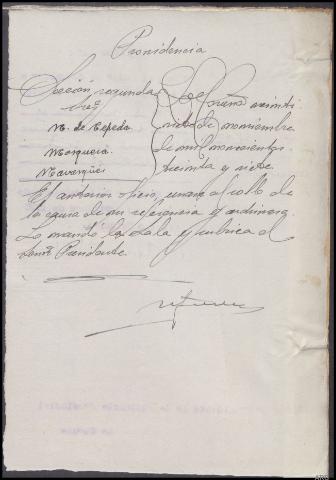 Providencia
Sección segunda
Sres
M. de Cepeda
Mosquera
Navergües
La Coruña veinti
siete de noviembre
de mil novecientos
treinta y siete
El anterior oficio, unase al rollo de
la causa de su referencia y
Lo mandó la Sala y rubrica el
Señor Presidente